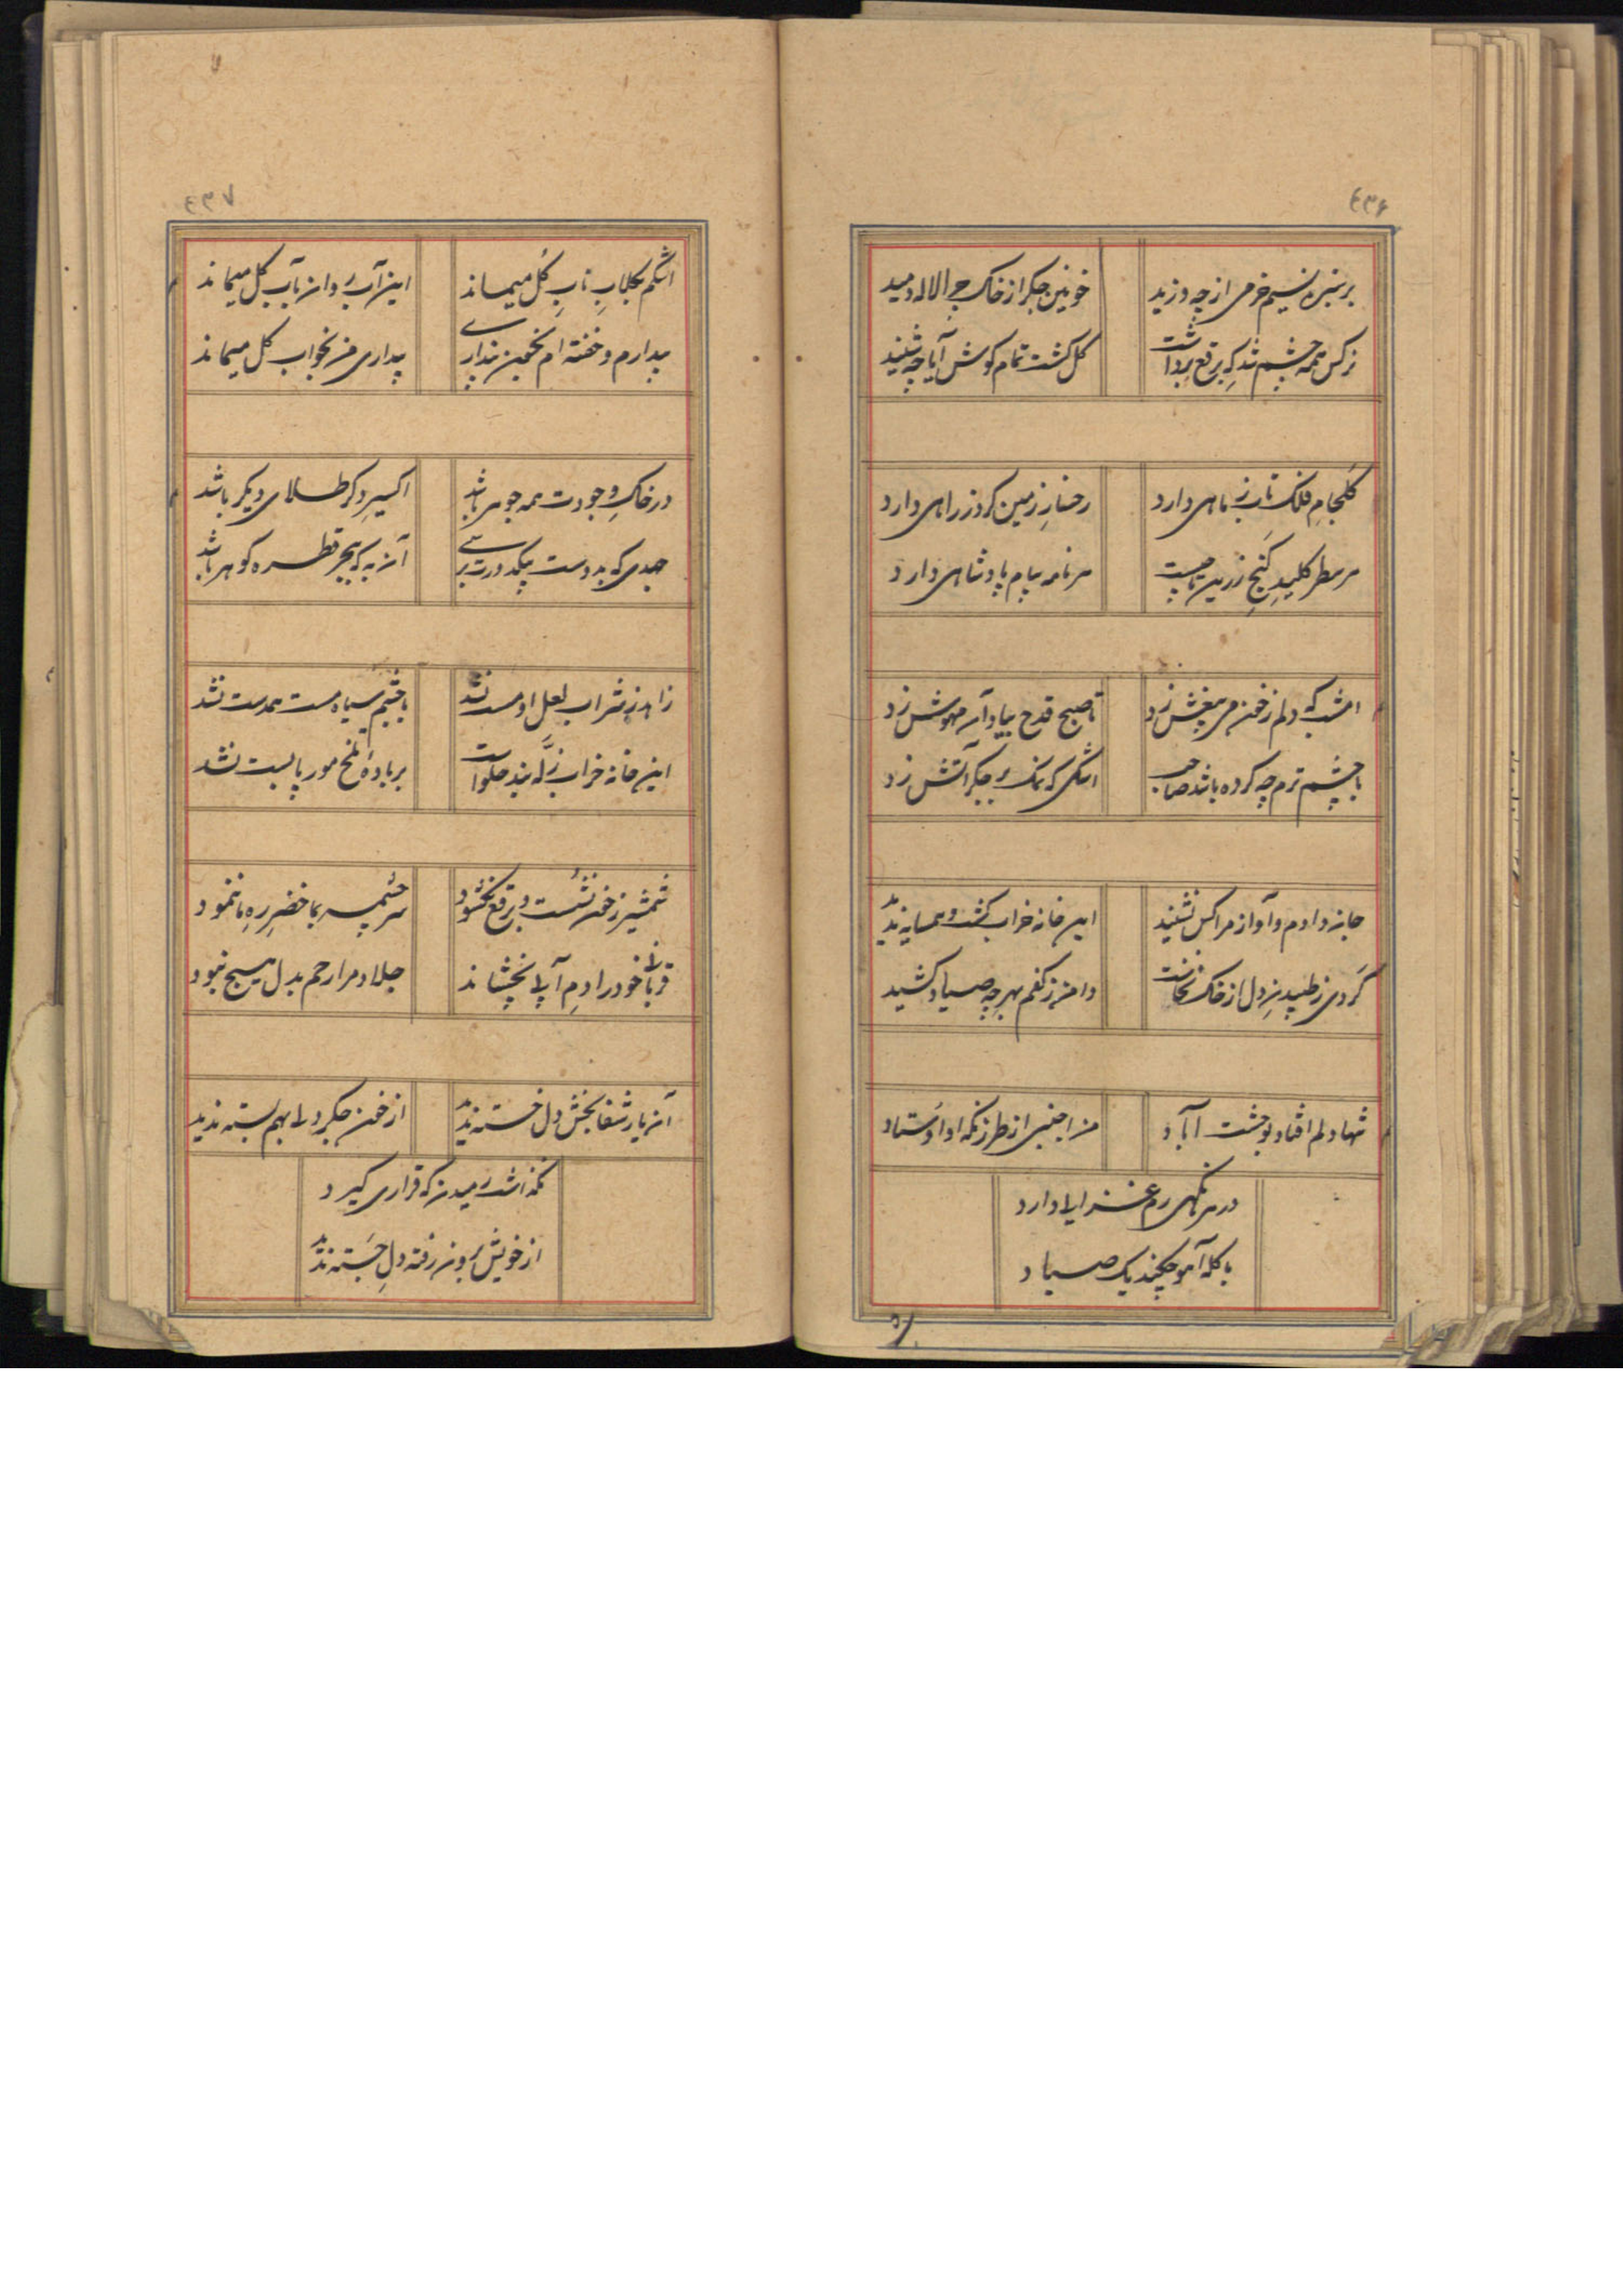 ۴۳۶
بر سبزه نسیم خرمی از چه وزید
خونین جگر از خاک چرا لاله دمید
نرکس همه چشم شد که برقع برداشت
کل کشت تمام کوش آیا چه شنید
کلجام فلک تاب ز ماهی دارد
رخسار زمین کرد ز راهی دارد
هر سطر کلید کنج زرین
هر نامه پیام پادشاهی دارد
امشب که دلم ز خون می بیغش زد
تا صبح قدح بیاد آن مهوش زد
با چشم ترم چه کرده باشد صاحب
اشکی که نمک بر جکر آتش زد
جان دادم و آواز مرا کس نشنید
این خانه خراب کشت و همسایه ندید
کردی ز طپیدن دل از خاک نخاست
دامن ز کفم بهر چه صیاد کشید
تنها دلم افتاد بوحشت آباد
من اجنبی از طرز نکه او استاد
در هر نکهی رم غزالی دارد
با کله آهو چکند یک صیاد
۴۳۷
اشکم بکلاب ناب کل میماند
این آب روان بآب کل میماند
بیدارم و خفته ام بخمین پنداری
بیداری من بخواب کل میماند
در خاک وجودت همه جوهر باشد
اکسیر دکر طلای دیکر باشد
جهدی که بدوست بیکدورت برسی
آن به که ببحر قطره کوهر باشد
زاهد ز شراب لعل او مست نشد
با چشم سیاه مست همدست نشد
این خانه خراب زله بند حلواست
بر باده تلخ مور پابست نشد
شمشیر ز خون نشست و برقع نکشود
سرچشمه بما خضر ره ما ننمود
قربانی خود را دم آبی نچشاند
جلاد مرا رحم بدل هیچ نبود
آن یار شفا بخش دل خسته ندید
از خون جکر دلی بهم بسته ندید
نکذاشت رمیدن که قراری کیرد
از خویش برون رفته دل جسته ندید